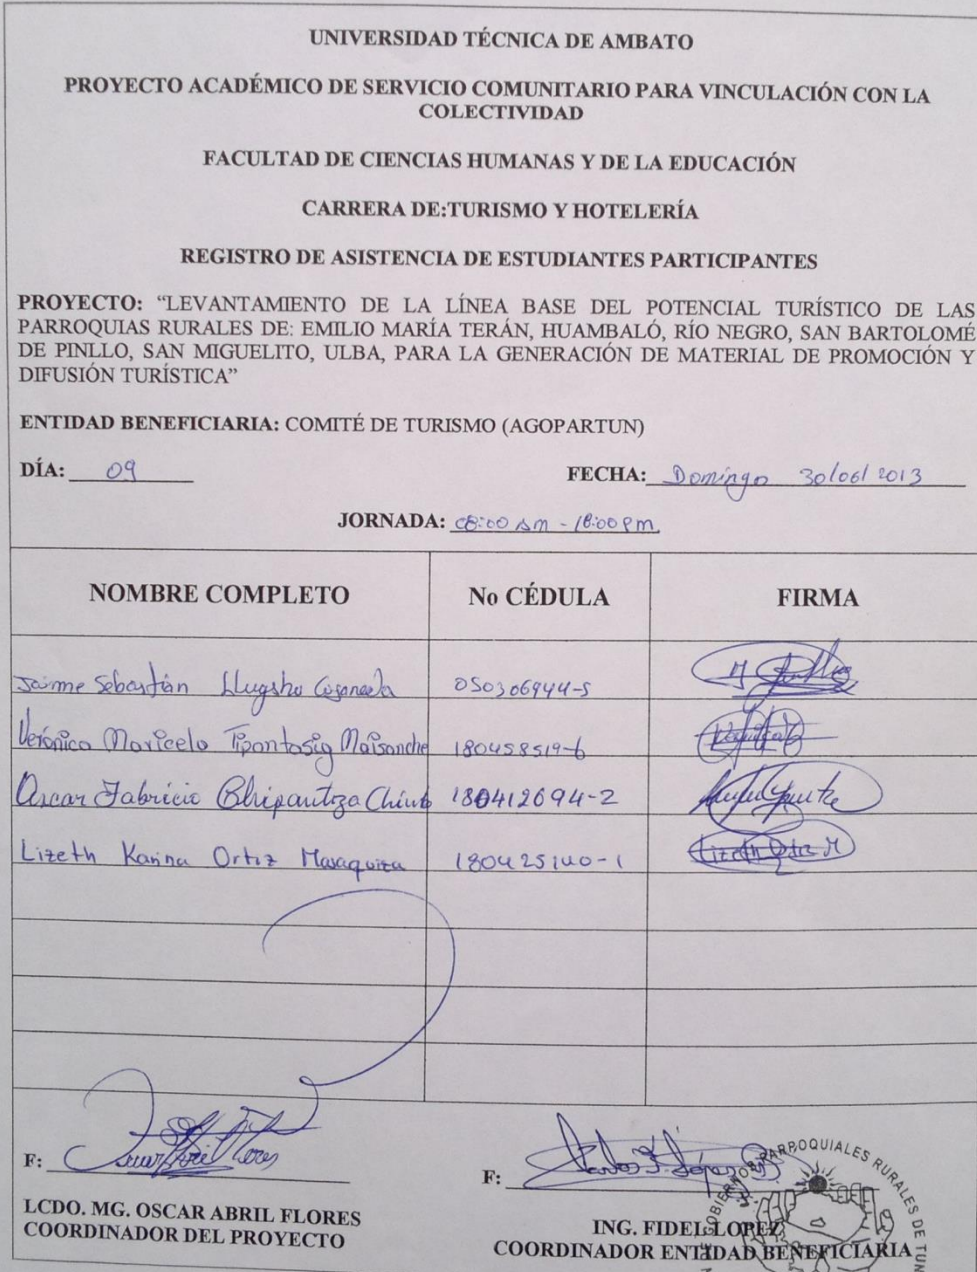 UNIVERSIDAD TÉCNICA DE AMBATO
PROYECTO ACADÉMICO DE SERVICIO COMUNITARIO PARA VINCULACIÓN CON LA
COLECTIVIDAD
FACULTAD DE CIENCIAS HUMANAS Y DE LA EDUCACIÓN
CARRERA DE:TURISMO Y HOTELERÍA
REGISTRO DE ASISTENCIA DE ESTUDIANTES PARTICIPANTES
PROYECTO: “LEVANTAMIENTO DE LA LÍNEA BASE DEL POTENCIAL TURÍSTICO DE LAS
PARROQUIAS RURALES DE: EMILIO MARÍA TERÁN, HUAMBALÓ, RÍO NEGRO, SAN BARTOLOMÉ
DE PINLLO, SAN MIGUELITO, ULBA, PARA LA GENERACIÓN DE MATERIAL DE PROMOCIÓN Y
DIFUSIÓN TURÍSTICA”
ENTIDAD BENEFICIARIA: COMITÉ DE TURISMO (AGOPARTUN)
DÍA: 09 FECHA: Domingo 30/06/2013
JORNADA: 08:00 AM - 18:00 PM
NOMBRE COMPLETO No CÉDULA FIRMA
Jaime Sebastián Llugsha 050306944-5
Verónica Maricela Tipantasig Maisanche 180458519-6
Oscar Fabricio Chipantiza 180412694-2
Lizeth Karina Ortiz Masaquiza 180425140-1 Lizeth Ortiz M
F: Oscar Abril Flores
F: Carlos F. López S.
LCDO. MG. OSCAR ABRIL FLORES
COORDINADOR DEL PROYECTO
ING. FIDEL LOPEZ
COORDINADOR ENTIDAD BENEFICIARIA
PARROQUIALES RURALES DE